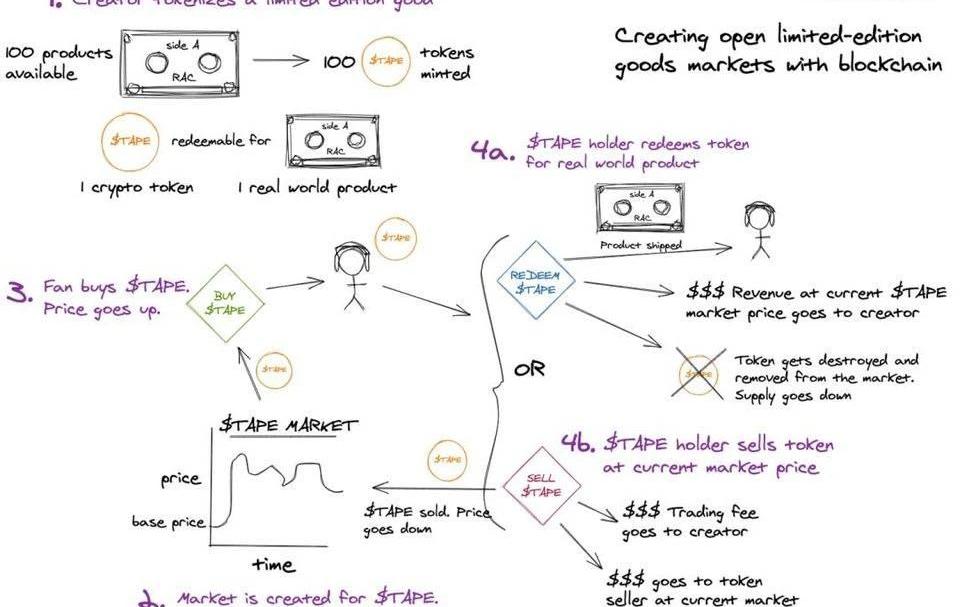 1. Creator tokenizes a limited edition good
100 products
available
side A
RAC
100
$TAPE
tokens
minted
Creating open limited-edition
goods markets with blockchain
$TAPE
redeemable for
side A
RAC
1 crypto token
1 real world product
4a. $TAPE holder redeems token
for real world product
side A
RAC
Product shipped
3. Fan buys $TAPE.
Price goes up.
BUY
$TAPE
$TAPE
REDEEM
$TAPE
$$$ Revenue at current $TAPE
market price goes to creator
$TAPE
Token gets destroyed and
removed from the market.
Supply goes down
OR
$TAPE
$TAPE MARKET
price
base price
time
$TAPE
$TAPE sold. Price
goes down
4b. $TAPE holder sells token
at current market price
SELL
$TAPE
$$$ Trading fee
goes to creator
$$$ goes to token
seller at current market
2. Market is created for $TAPE.